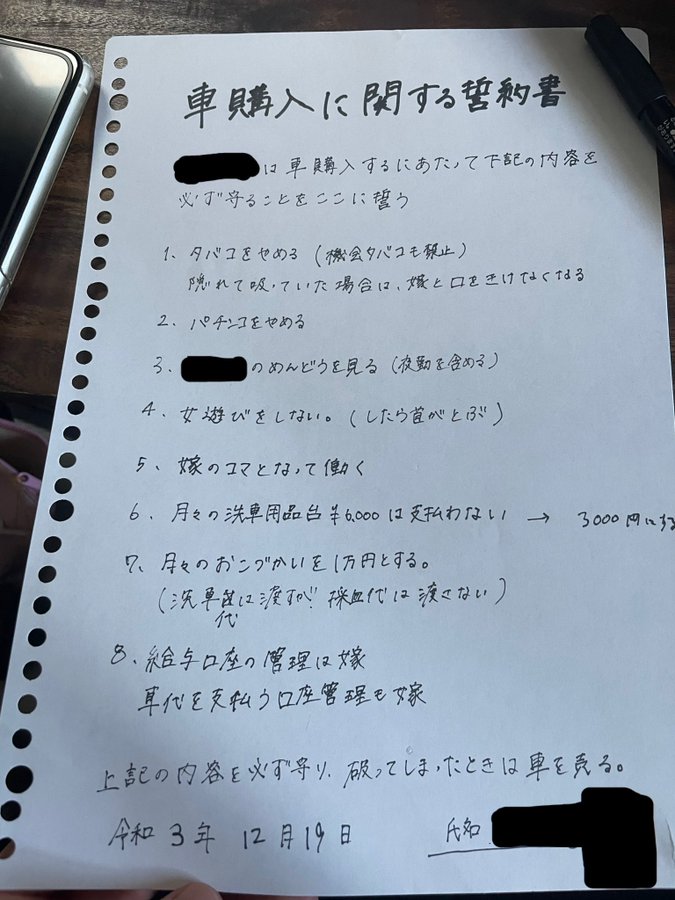 車購入に関する誓約書
は車購入するにあたって下記の内容を
必ず守ることをここに誓う
1. タバコをやめる (機会タバコも禁止)
隠れて吸っていた場合は、嫁と口をきけなくなる
2. パチンコをやめる
3. のめんどうを見る (夜勤を含める)
4. 女遊びをしない。(したら首がとぶ)
5. 嫁のコマとなって働く
6. 月々の洗車用品台¥6,000は支払わない → 3000円にする
7. 月々のおこづかいを1万円とする。
(洗車代は渡すが! 採血代は渡さない)
8. 給与口座の管理は嫁
車代を支払う口座管理も嫁
上記の内容を必ず守り、破ってしまったときは車を売る。
令和3年12月19日 氏名